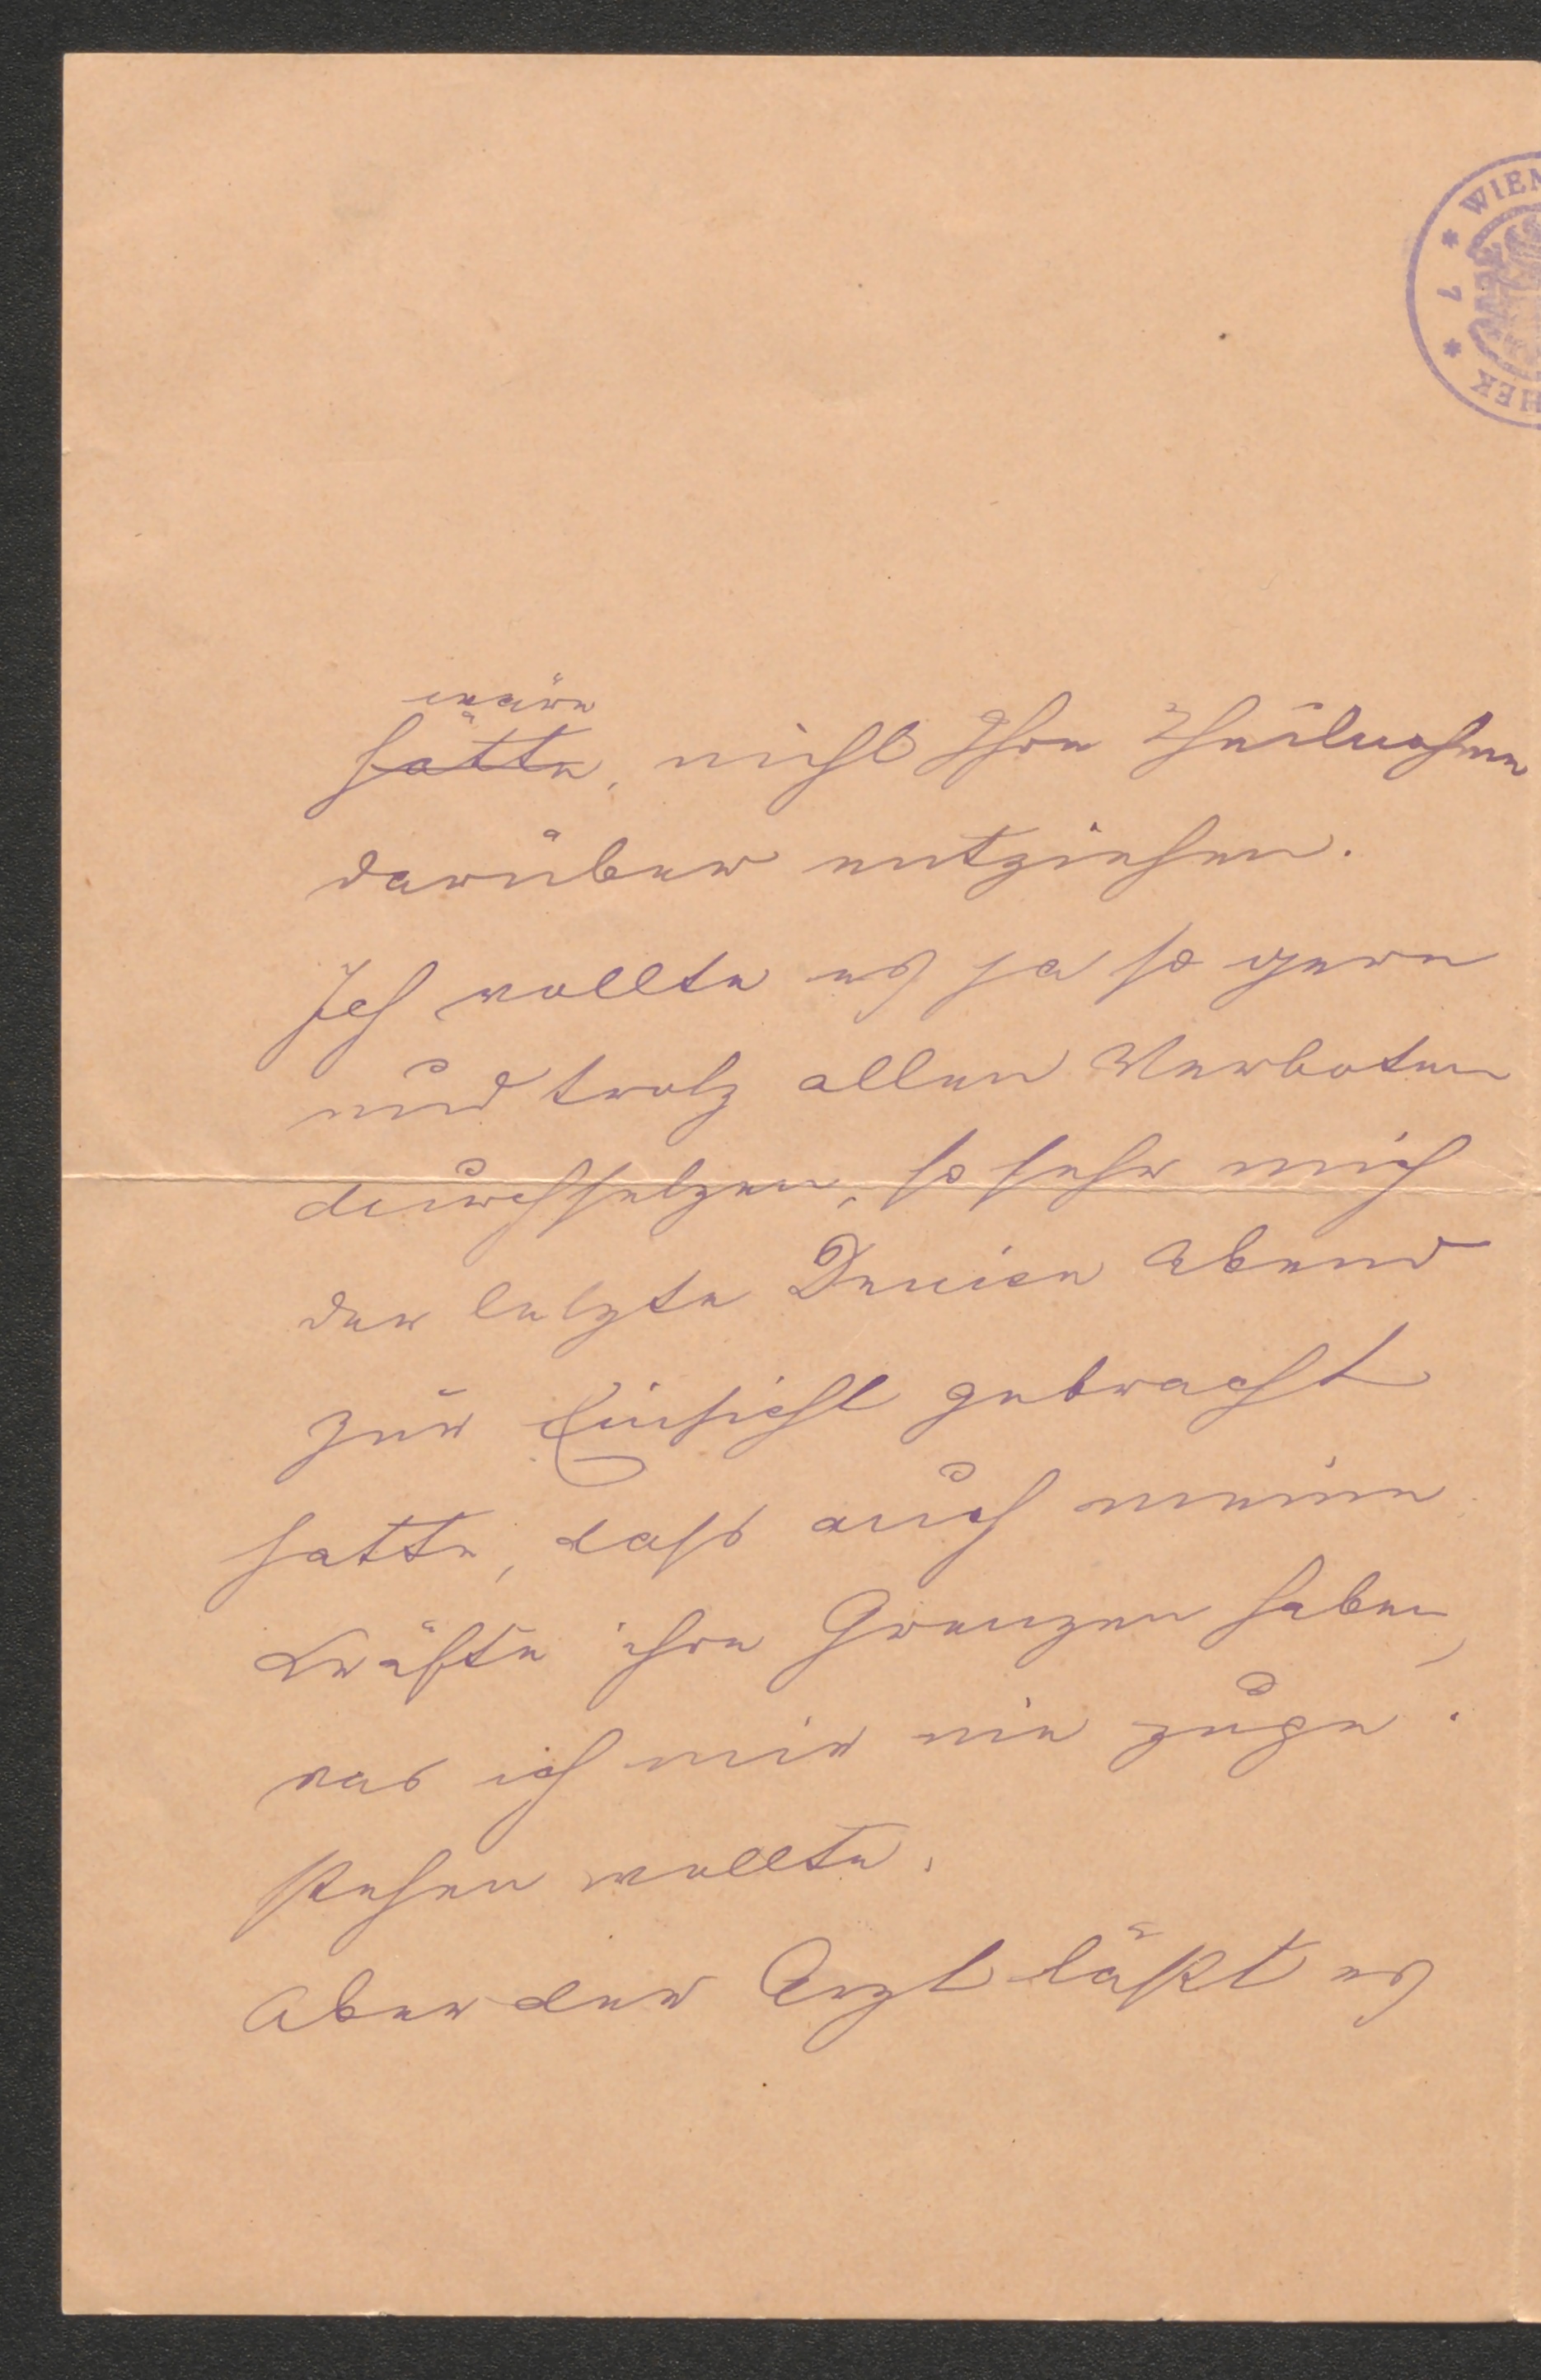 WIEN
* 7 *
HEK
wäre
hätte, nicht Ihre Theilnahme
darüber entziehen.
Ich wollte es ja so gern
und trotz allen Verboten
durchsetzen, so sehr mich
der letzte Denise Abend
zur Einsicht gebracht
hatte, dass auch meine
Kräfte ihre Grenzen haben,
was ich mir nie zuge-
stehen wollte.
Aber der Arzt läßt es